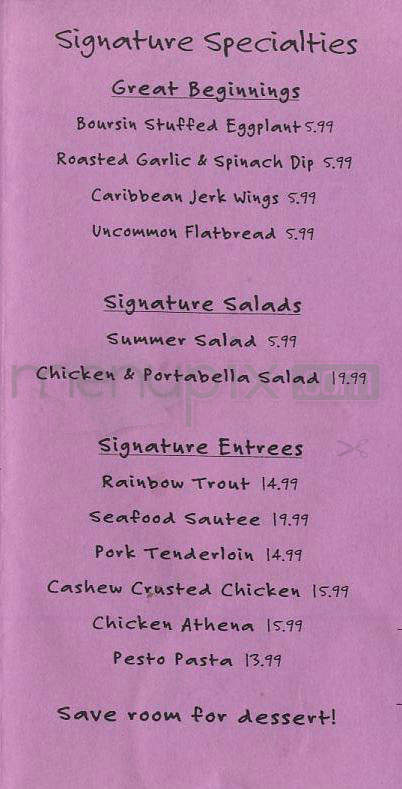 Signature Specialties
Great Beginnings
Boursin Stuffed Eggplant 5.99
Roasted Garlic & Spinach Dip 5.99
Caribbean Jerk Wings 5.99
Uncommon Flatbread 5.99
Signature Salads
Summer Salad 5.99
Chicken & Portabella Salad 19.99
menupix.com
Signature Entrees
Rainbow Trout 14.99
Seafood Sautee 19.99
Pork Tenderloin 14.99
Cashew Crusted Chicken 15.99
Chicken Athena 15.99
Pesto Pasta 13.99
Save room for dessert!